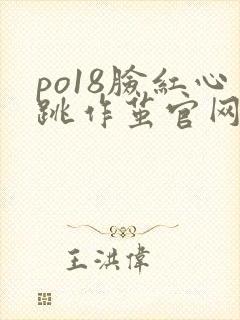 po18脸紅心
跳作茧官网
王洪偉